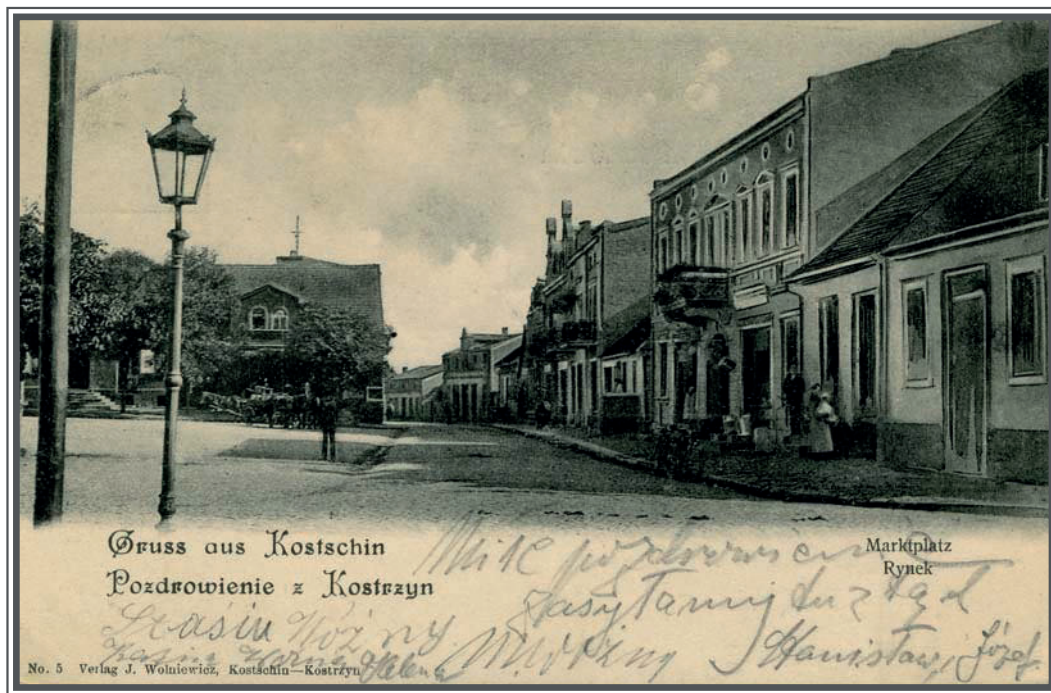 Gruss aus Kostschin
Pozdrowienie z Kostrzyn
Marktplatz
Rynek
Miłe pozdrowienie
zasyłamy
Stasiu Woźny
Stanisław, Józef
No. 5 Verlag J. Wolniewicz, Kostschin—Kostrzyn